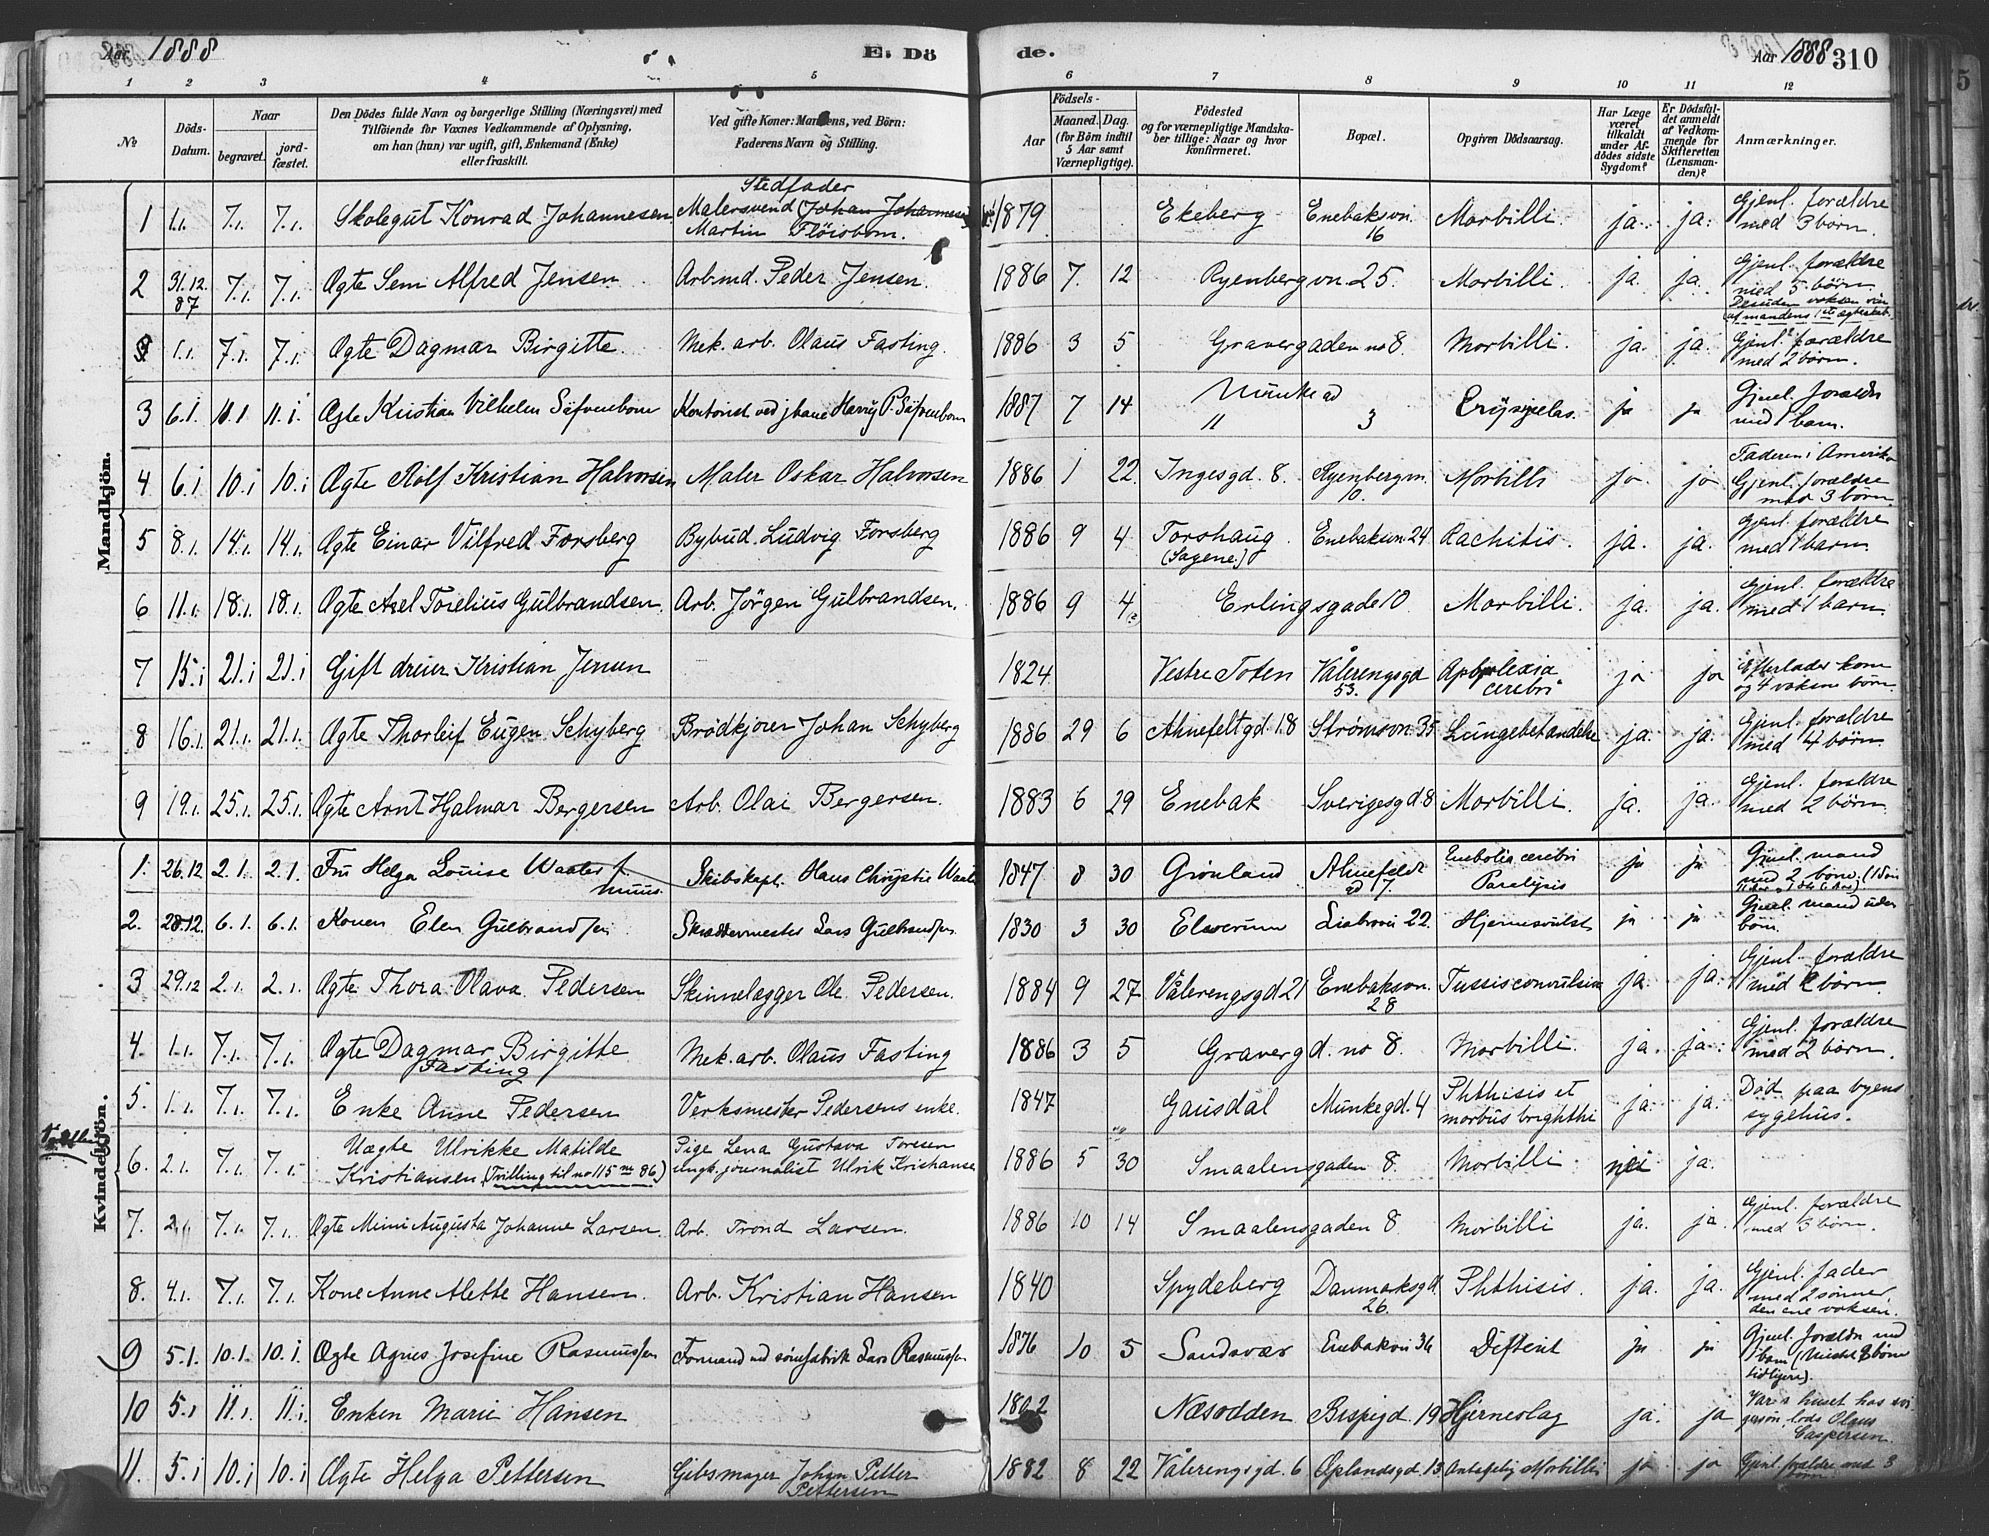 Aar 1888 E. Dö
de. Aar 1888 310
1 2 3 4 5 6 7 8 9 10 11 12
№
Döds-Datum.
Naar
begravet. jord-fæstet.
Den Dödes fulde Navn og borgerlige Stilling (Næringsvei) med
Tilföiende for Voxnes Vedkommende af Oplysning,
om han (hun) var ugift, gift, Enkemand (Enke)
eller fraskilt.
Ved gifte Koner: Mandens, ved Börn:
Faderens Navn og Stilling.
Födsels-
Aar Maaned. Dag.
(for Börn indtil
5 Aar samt
Værnepligtige).
Födested
og for værnepligtige Mandska-
ber tillige: Naar og hvor
konfirmeret.
Bopæl.
Opgiven Dödsaarsag.
Har Læge
været
tilkaldt
under Af-
dödes sidste
Sygdom?
Er Dödsfal-
det anmeldt
af Vedkom-
mende for
Skifteretten
(Lensman-
den)?
Anmærkninger.
Mandkjön.
1 1.1. 7.1. 7.1. Skolegut Konrad Johannesen Stedfader Malersvend (Johan Johannesen) Martin Flöisbon. 1879 Ekeberg Enebaksvn. 16 Morbilli. ja. ja. Gjenl. forældre med 3 børn.
2 31.12.87 7.1. 7.1. Ægte Sem Alfred Jensen Arb.md. Peder Jensen. 1886 7. 12 Ryenbergvn. 25. Morbilli. ja. ja. Gjenl. forældre med 5 børn. Desuden voksen af mandens 1ste ægteskab.
3 1.1. 7.1. 7.1. Ægte Dagmar Birgitte. Mek. arb. Olaus Fasting. 1886 3 5 Gravergaden no 8. Morbilli. ja. ja. Gjenl. forældre med 2 børn.
3 6.1. 11.1 11.1. Ægte Kristian Vilhelm Säfvenbom Kontorist ved jbane Harry P. Säfvenbom 1887 7 14 Munkegd 11 3 Erysipelas. ja ja Gjenl. forældre med 1 barn.
4 6.1 10.1 10.1 Ægte Rolf Kristian Halvorsen Maler Oskar Halvorsen 1886 1 22. Ingesgd. 8. Ryenbergvn. 10. Morbilli ja ja Faderen i Amerika Gjenl. forældre med 3 børn
5 8.1. 14.1. 14.1. Ægte Einar Vilfred Forsberg Bybud. Ludvig Forsberg 1886 9 4 Torshaug (Sagene.) Enebaksvn. 24 Rachitis. ja. ja. Gjenl. forældre med 1 barn.
6 11.1. 18.1. 18.1. Ægte Axel Torelius Gulbrandsen. Arb. Jörgen Gulbrandsen. 1886 9 4 Erlingsgade 10. Morbilli. ja. ja. Gjenl. forældre med 1 barn.
7 15.1 21.1 21.1 Gift dreier Kristian Jensen 1824 Vestre Toten Vålerengsgd 53. Apoplexia cerebri ja ja Efterlader kone og 4 voksne børn.
8 16.1. 21.1. 21.1. Ægte Thorleif Eugen Schyberg Brödkjører Johan Schyberg 1886 29 6 Ahnefeltgd. 18 Strømsvn. 35 Lungebetændelse ja. ja. Gjenl. forældre med 4 børn.
9 19.1. 25.1. 25.1. Ægte Arnt Hjalmar Bergersen Arb. Olai Bergersen. 1883 6 29 Enebak Sverigesgd. 8 Morbilli. ja. ja. Gjenl. forældre med 2 børn.
Kvindekjön.
1. 26.12 2.1. 2.1. Fru Helga Louise Waaler Skibskapt. Hans Chrystie Waaler 1847 8 30 Grönland Ahnefeldt gd 17. Embolia cerebri Paralysis ja ja Gjenl. mand med 2 børn.
2. 28.12. 6.1. 6.1. Konen Elen Gulbrandsen Skræddermester Lars Gulbrandsen 1830 3 30 Elverum Liabroven 22. Hjernesvulst ja ja Gjenl. mand uden børn.
3 29.12 2.1. 2.1. Ægte Thora Olava Pedersen Skinnelægger Ole Pedersen. 1884 9 27 Vålerengsgd 21 Enebaksvn. 28 Tussis convulsiva ja. ja. Gjenl. forældre med 2 børn.
4. 1.1. 7.1. 7.1. Ægte Dagmar Birgitte Fasting Mek. arb. Olaus Fasting 1886 3 5 Gravergd. no 8. Morbilli. ja. ja. Gjenl. forældre med 2 børn.
5. 1.1. 7.1. 7.1. Enke Anne Pedersen Verksmester Pedersens enke. 1847 Gausdal Munkegd. 4 Phthisis et morbus brighthii ja. ja. Død paa byens sygehus.
6. 2.1. 7.1. 7.1. Uægte Ulrikke Matilde Kristiansen (Tvilling til no 115 m 86) Pige Lena Gustava Toresen ungk. journalist Ulrik Kristiansen 1886 5 30 Smaalensgaden 8. Morbilli. nei ja.
7. 2. 7.1. 7.1. Ægte Mimi Augusta Johanne Larsen. Arb. Trond Larsen. 1886 10 14 Smaalensgaden 8 Morbilli ja. ja. Gjenl. forældre med 3 børn.
8. 4.1. 7.1. 7.1. Kone Anne Alette Hansen. Arb. Kristian Hansen 1840 Spydeberg Danmarksgd. 26. Phthisis. ja. ja. Gjenl. fader med 2 sønner den ene voksen.
9 5.1. 10.1. 10.1. Ægte Agnes Josefine Rasmussen Formand ved sömfabrik Lars Rasmussen 1876 10 5 Sandsvær Enebakvn 36 Difterit ja ja Gjenl. forældre med 1 barn (Mistet 8 børn tidligere).
10 5.1 11.1. 11.1. Enken Marie Hansen 1802 Næsodden Bispegd. 19 Hjerneslag ja. ja Var i huset hos svigersøn, lods Olaus Caspersen.
11. 5.1 10.1 10.1 Ægte Helga Pettersen Gibsmager Johan Petter Pettersen 1882 8 22 Vålerengsgd. 6 Oplandsgd. 13 Antagelig Morbilli ja ja Gjenl. forældre med 3 børn.